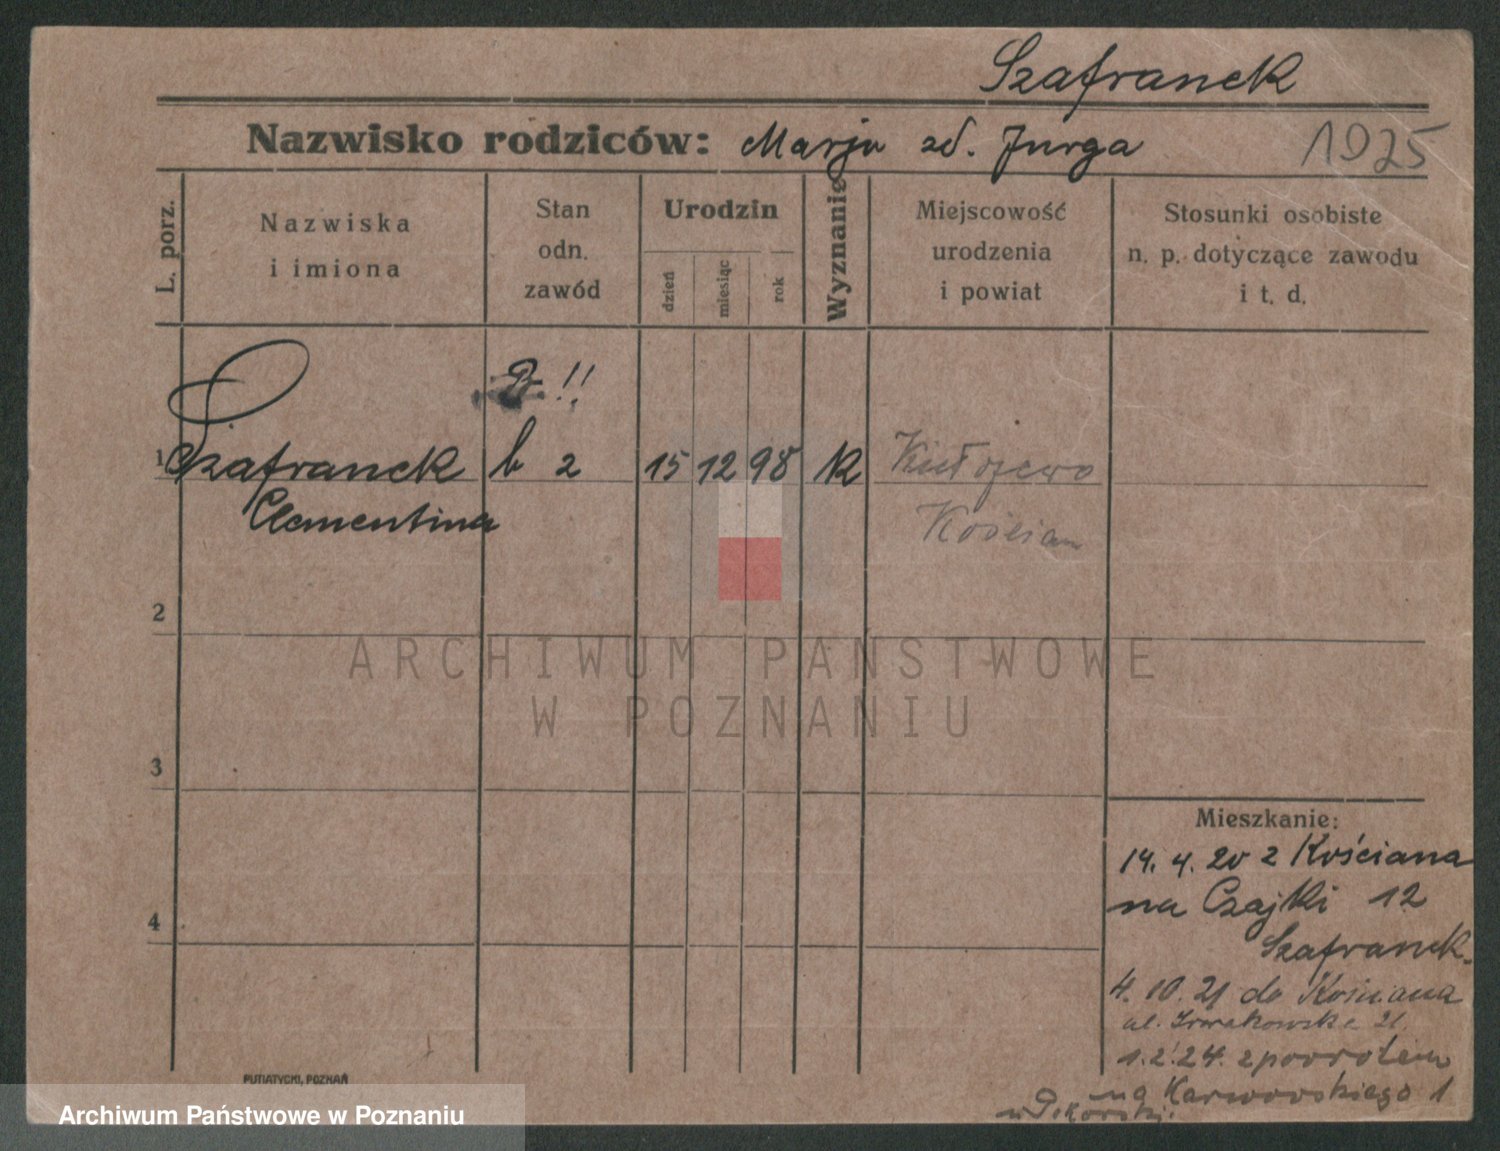 Szafranek
Nazwisko rodziców: Marja zd. Jurga 1925
L. porz.
Nazwiska
i imiona
Stan
odn.
zawód
Urodzin
dzień
miesiąc
rok
Wyznanie
Miejscowość
urodzenia
i powiat
Stosunki osobiste
n. p. dotyczące zawodu
i t. d.
B !!
1 Szafranek b z 15 12 98 K
Clementina Kościan
2
3
4
ARCHIWUM PAŃSTWOWE
W POZNANIU
Mieszkanie:
14. 4. 20 z Kościana
na Czajki 12
Szafranek.
4. 10. 21 do Kościana
ul. 21.
1. 2. 24. z powrotem
na Karwowskiego 1
PUTIATYCKI, POZNAŃ
Archiwum Państwowe w Poznaniu